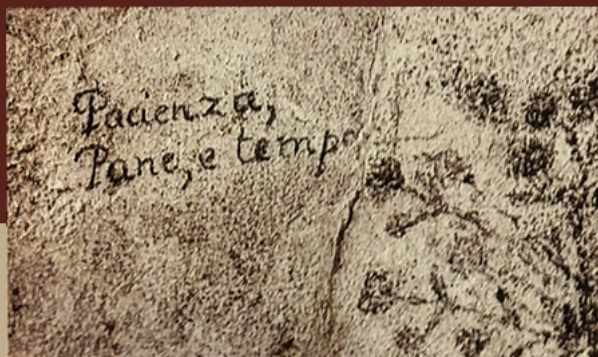 Pacienza,
Pane, e tempo